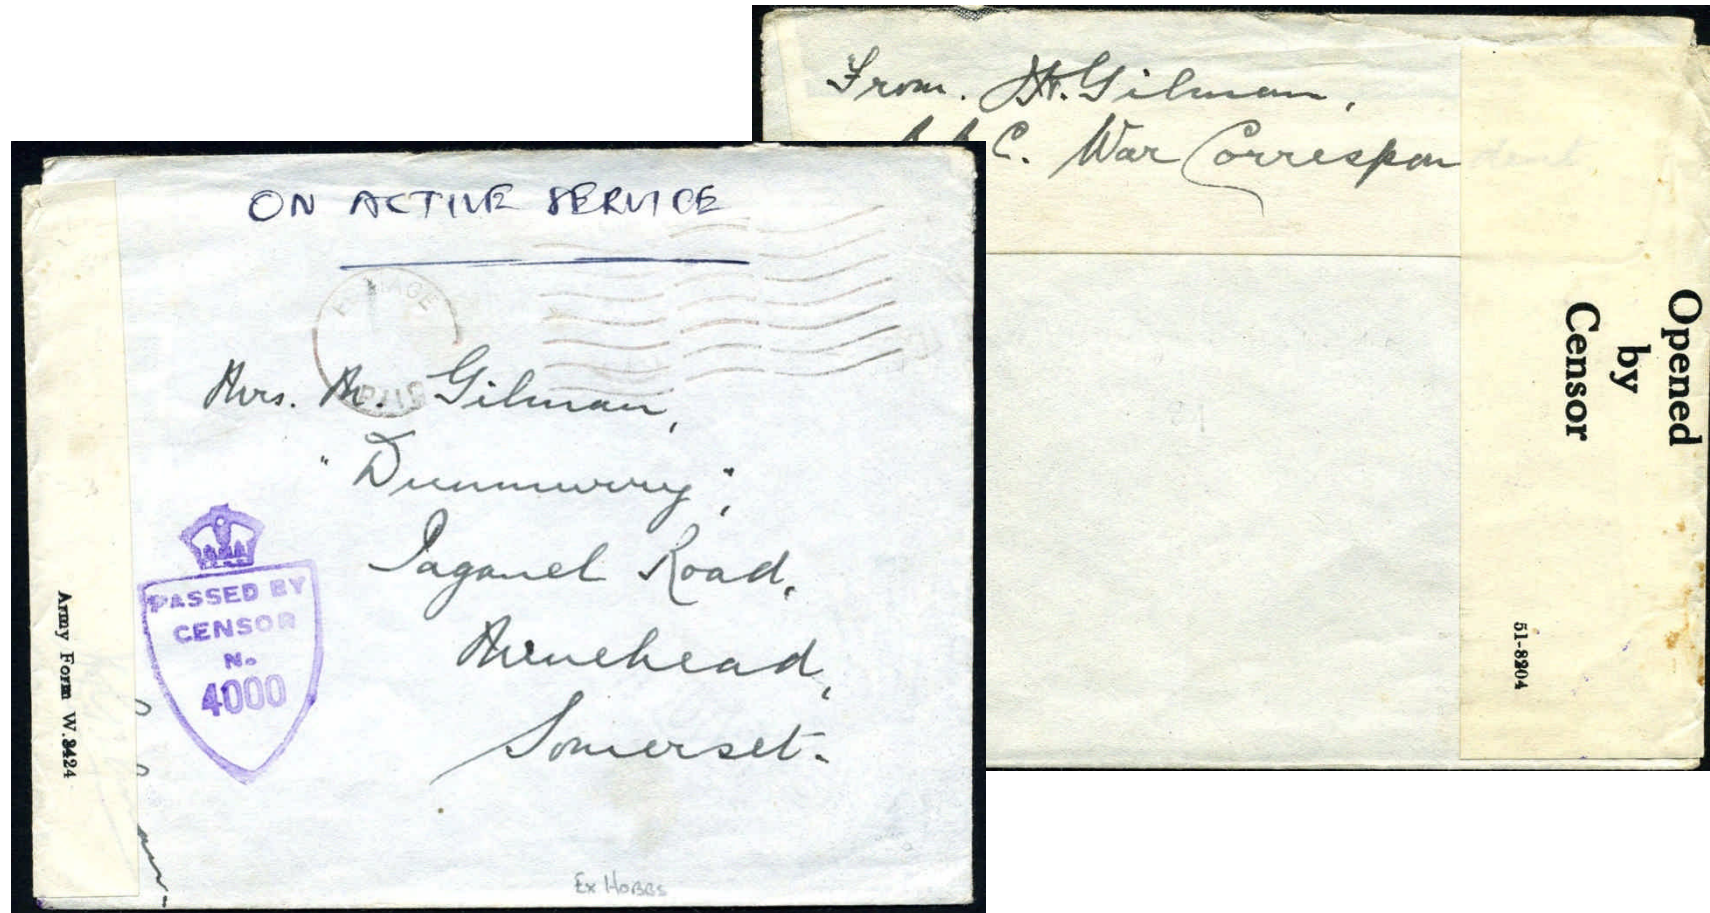 ON ACTIVE SERVICE
Mrs. M. Gilman,
"Dunmurry",
Paganel Road,
Minehead,
Somerset.
PASSED BY
CENSOR
No.
4000
Army Form W.3424
Ex HOBBS
From. H. Gilman,
C. War Correspondent
Opened
by
Censor
51-8204